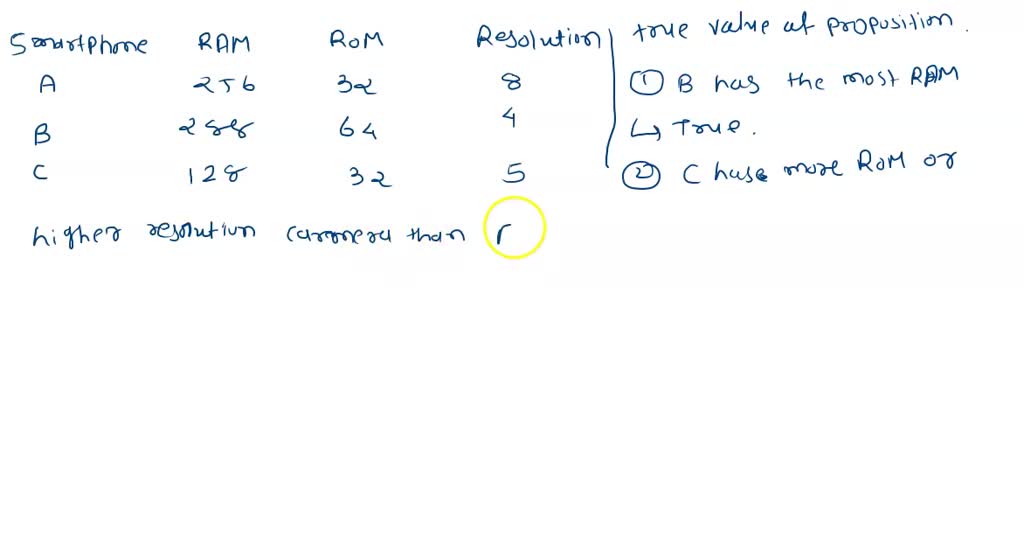 Smartphone RAM ROM Resolution
A 256 32 8
B 288 64 4
C 128 32 5
true value of proposition.
① B has the most RAM
↳ True.
② C has more ROM or
higher resolution camera than